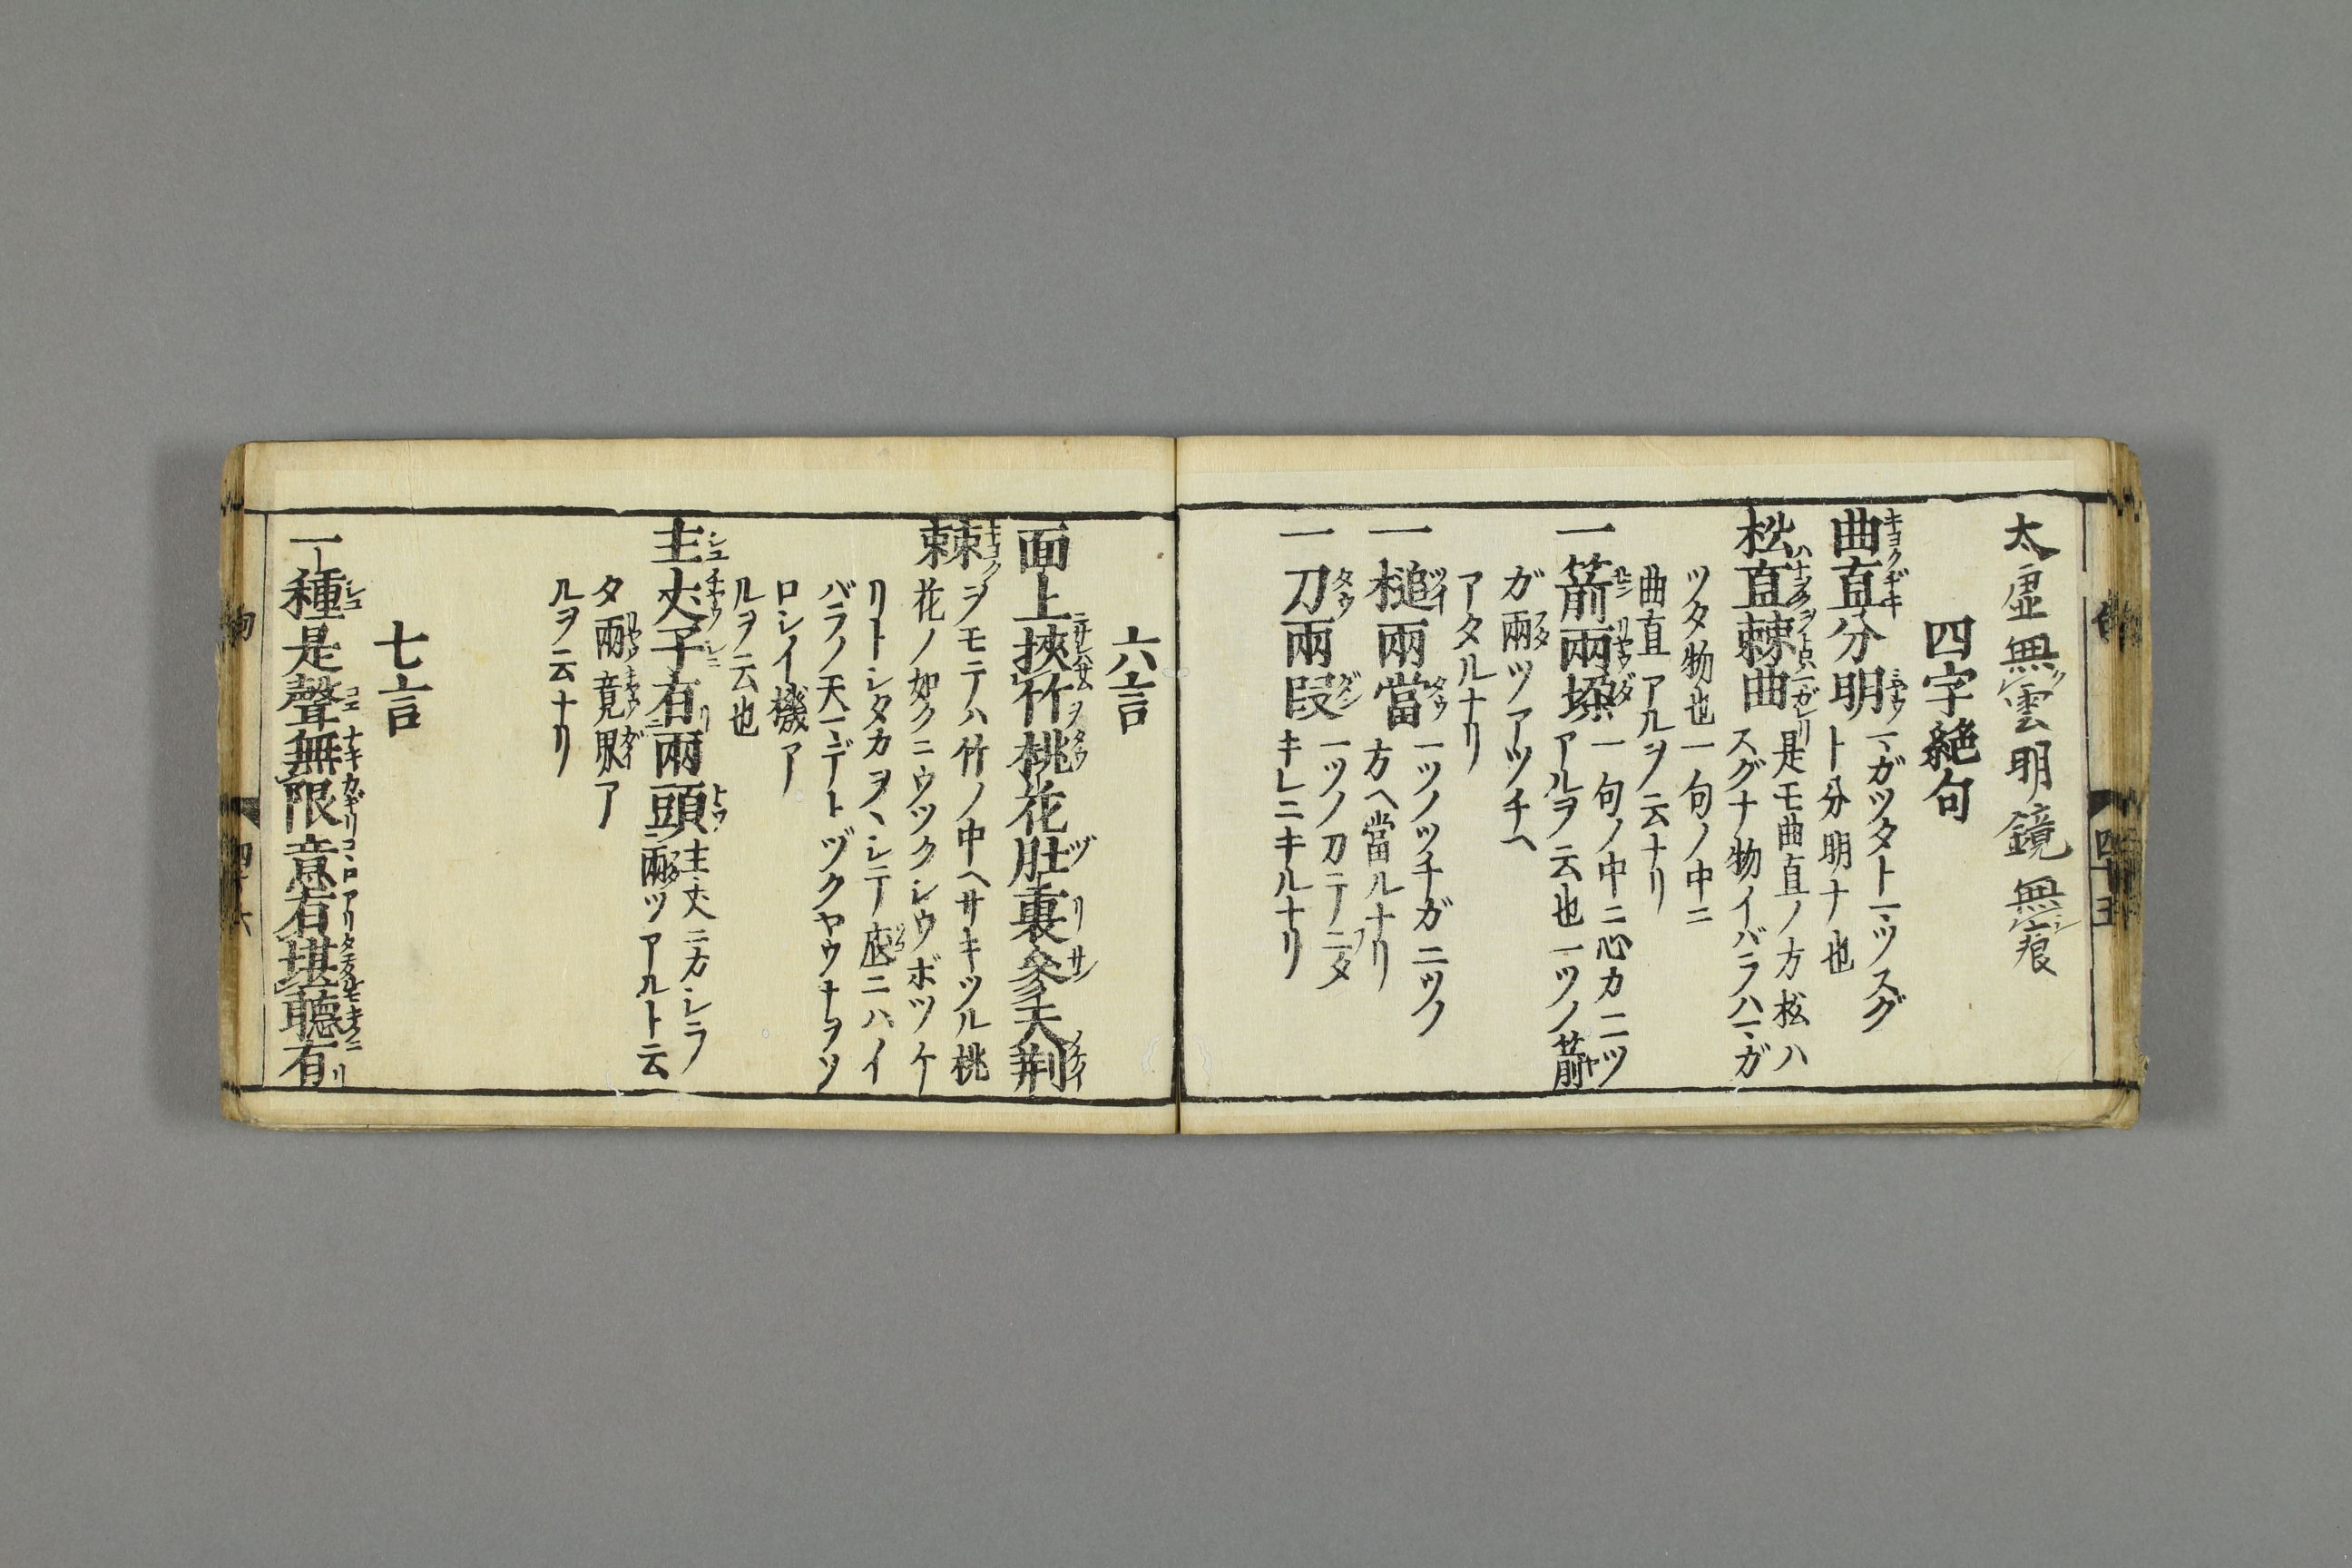 太虛無雲明鏡無痕
四字絶句
曲直分明 マガツタトマツスグ
ト分明ナ也
松直棘曲 是モ曲直ノ方松ハ
スグナ物イバラハマガ
ツタ物也一句ノ中ニ
曲直アルヲ云ナリ
一箭兩垜 一句ノ中ニ心カ二ツ
アルヲ云也一ツノ箭
ガ兩ツアツチヘ
アタルナリ
一槌兩當 一ツノツチガ二ツノ
方ヘ當ルナリ
一刀兩段 一ツノ刀テ二タ
キレニキルナリ
六言
面上挾竹桃花肚裏參天荆
棘 ヲモテハ竹ノ中ヘサキツル桃
花ノ如クニウツクシウボツケ
リトシタカヲヽシテ底ニハイ
バラノ天マデトヅクヤウナヲソ
ロシイ機ア
ルヲ云也
主丈子有兩頭 主丈ニカシラ
兩ツアルト云
タ兩竟界ア
ルヲ云ナリ
七言
一種是聲無限意有堪聽有